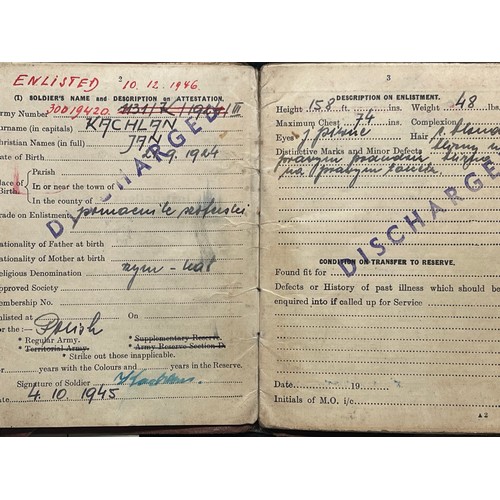 ENLISTED 2 10.12.1946.
(I) SOLDIER'S NAME and DESCRIPTION on ATTESTATION.
Army Number 30019420 III
Surname (in capitals) KACHLAN
Christian Names (in full) JAN
Date of Birth 9.1924
Parish
Place of Birth. In or near the town of
In the county of
Trade on Enlistment pomocnik
Nationality of Father at birth
Nationality of Mother at birth
Religious Denomination rzym-kat
Approved Society
Membership No.
Enlisted at On
For the: Polish
* Regular Army. * Supplementary Reserve.
* Territorial Army. * Army Reserve Section D.
* Strike out those inapplicable.
For years with the Colours and years in the Reserve.
Signature of Soldier
Date 4.10.1945
DISCHARGED
3
DESCRIPTION ON ENLISTMENT.
Height 158 ft. ins. Weight 48 lbs.
Maximum Chest 74 ins. Complexion
Eyes piwne Hair
Distinctive Marks and Minor Defects
prawym
na prawym
DISCHARGE
CONDITION ON TRANSFER TO RESERVE.
Found fit for
Defects or History of past illness which should be
enquired into if called up for Service
Date 19
Initials of M.O. i/c
A 2